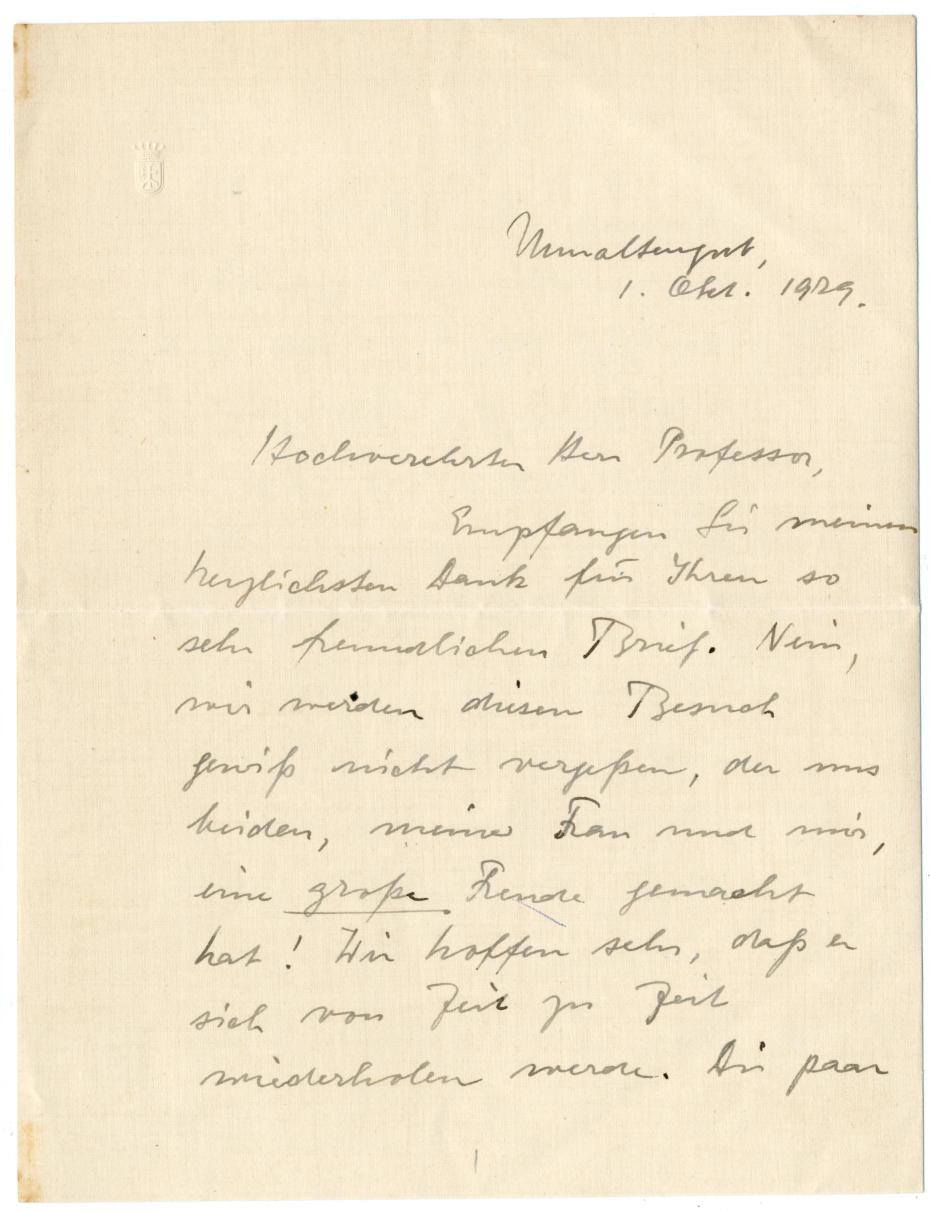 1. Okt. 1929.
Hochverehrter Herr Professor,
Empfangen Sie meinen
herzlichsten Dank für Ihren so
sehr freundlichen Brief. Nein,
wir werden diesen Besuch
gewiß nicht vergeßen, der uns
beiden, meiner Frau und mir,
eine große Freude gemacht
hat! Wir hoffen sehr, daß er
sich von Zeit zu Zeit
wiederholen werde. Die paar
1